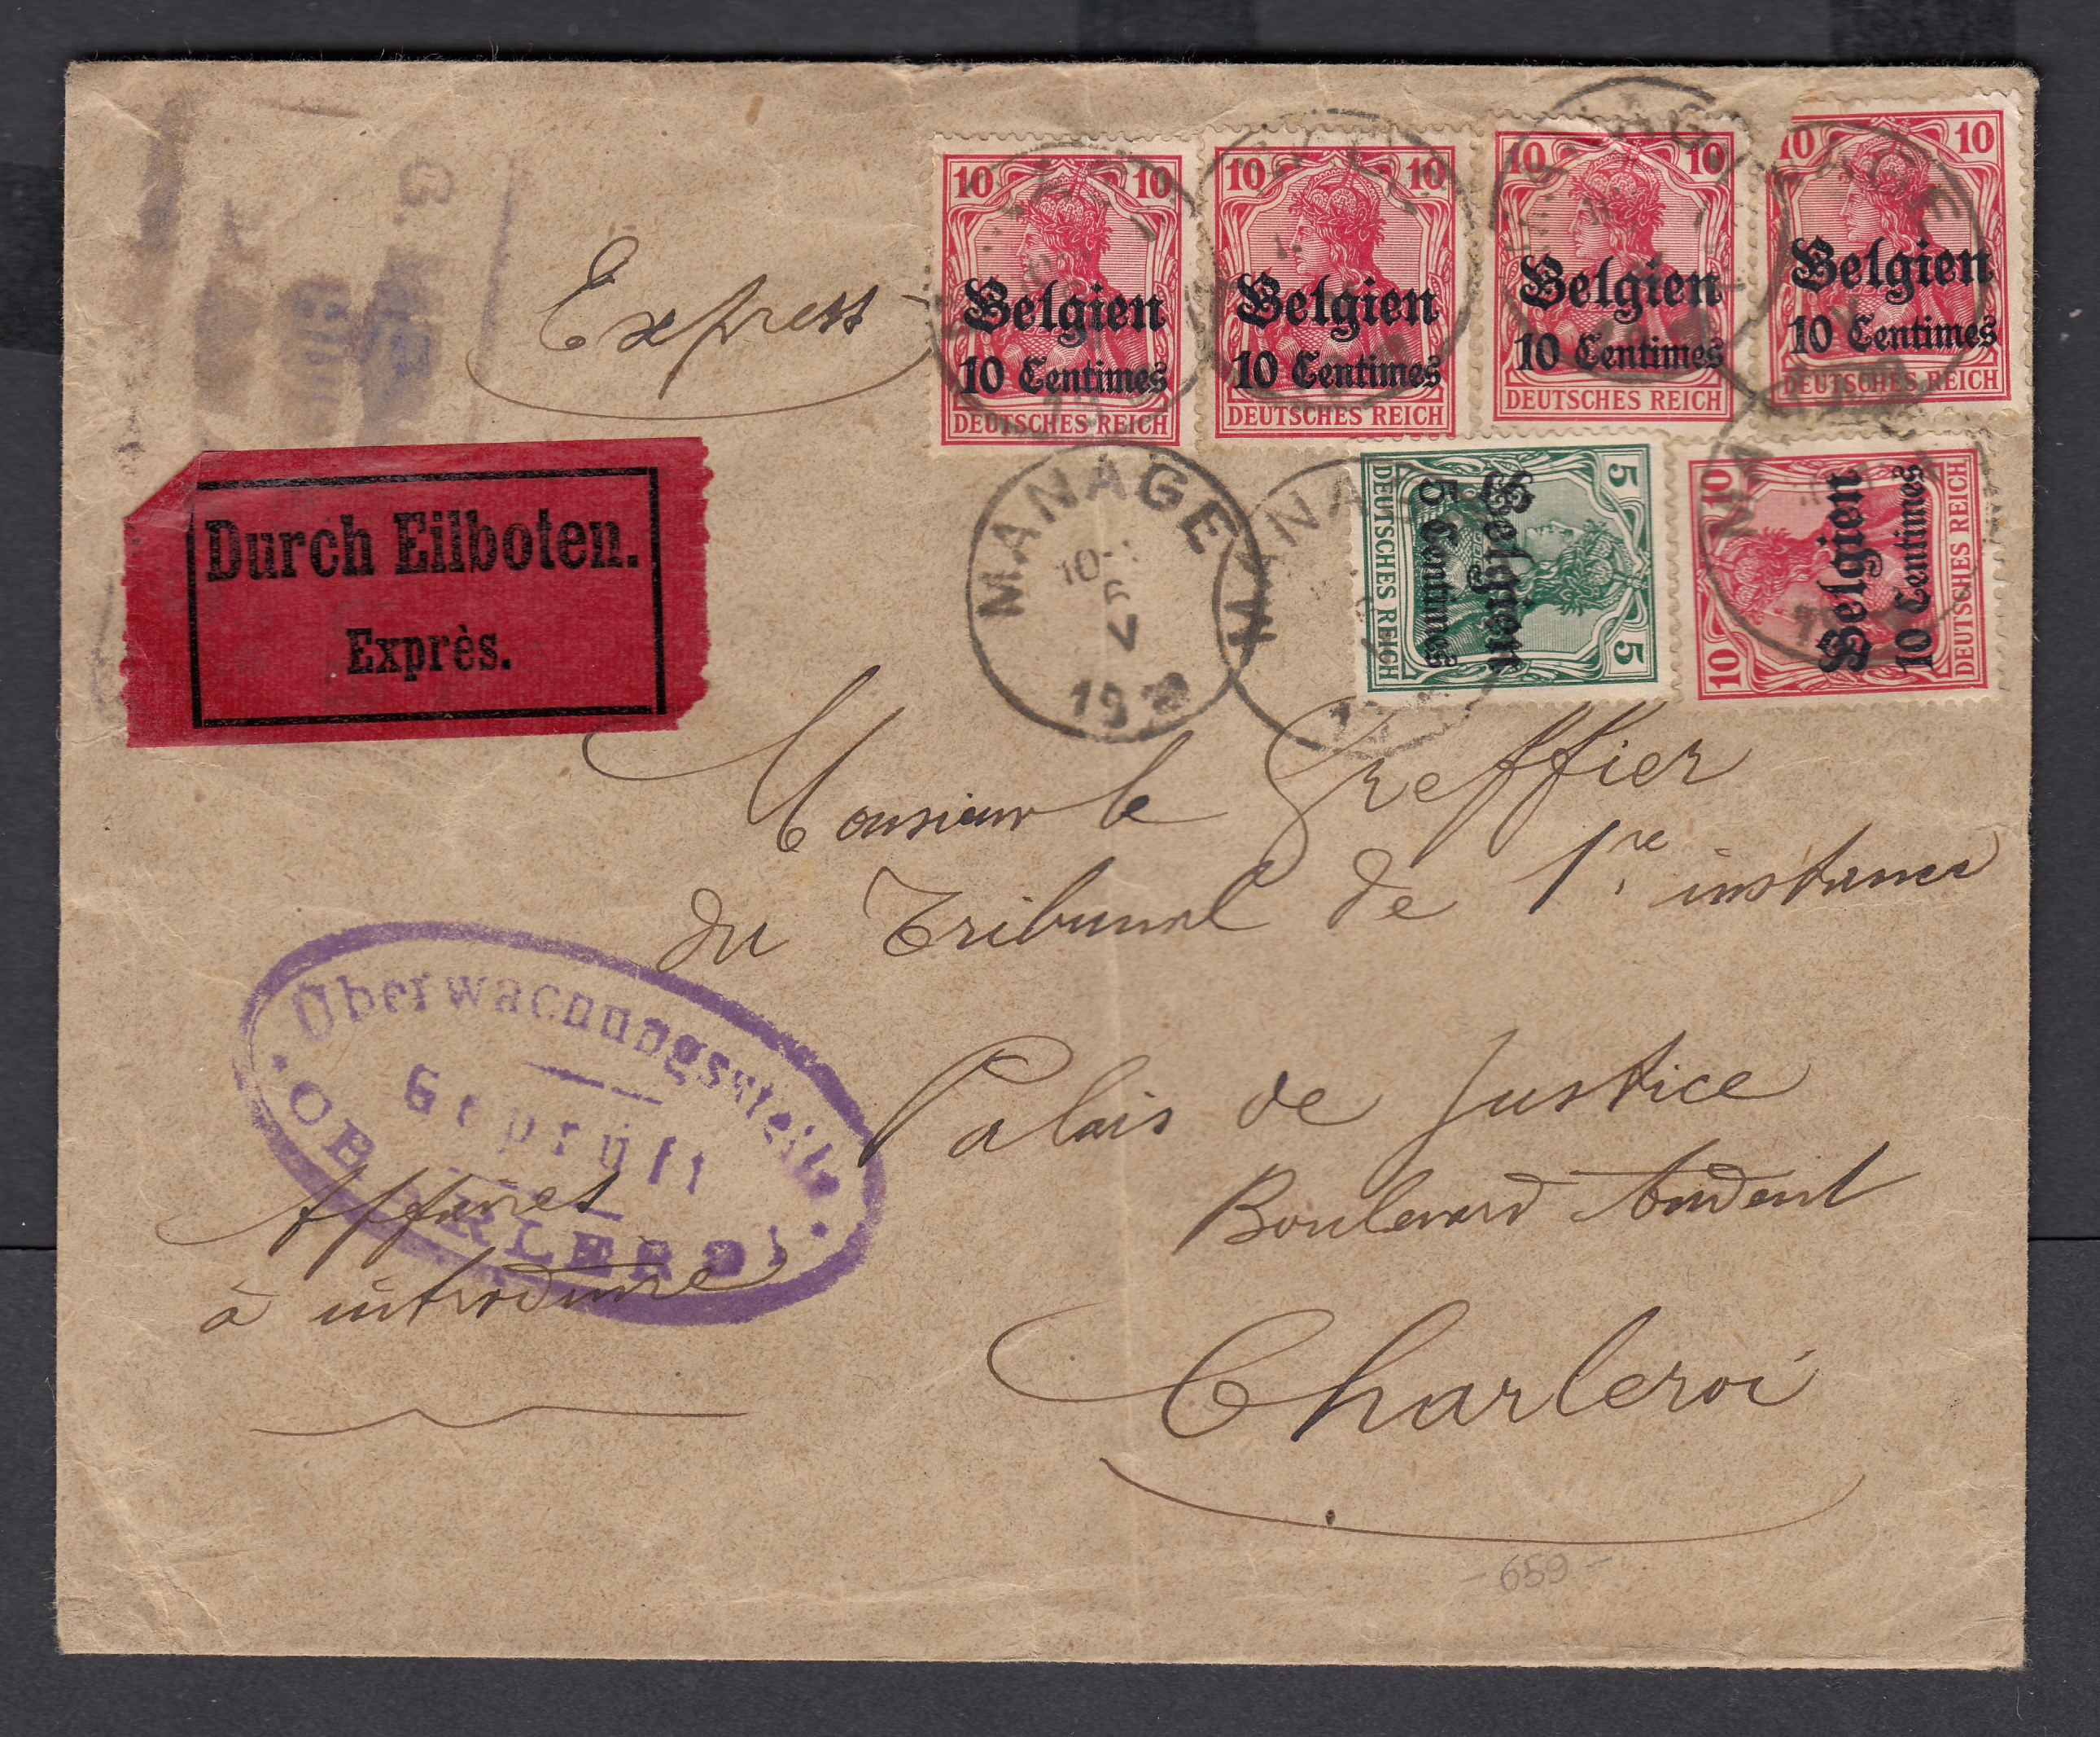 Express
10 10
Belgien
10 Centimes
DEUTSCHES REICH
10 10
Belgien
10 Centimes
DEUTSCHES REICH
10 10
Belgien
10 Centimes
DEUTSCHES REICH
10 10
Belgien
10 Centimes
DEUTSCHES REICH
5 5
Belgien
5 Centimes
DEUTSCHES REICH
10 10
Belgien
10 Centimes
DEUTSCHES REICH
MANAGE
V
Durch Eilboten.
Exprès.
Monsieur le Greffier
du Tribunal de 1re instance
Palais de Justice
Boulevard Audent
Charleroi
Überwachungsstelle
Geprüft
CHARLEROI
Affaires
à introduire
- 659 -